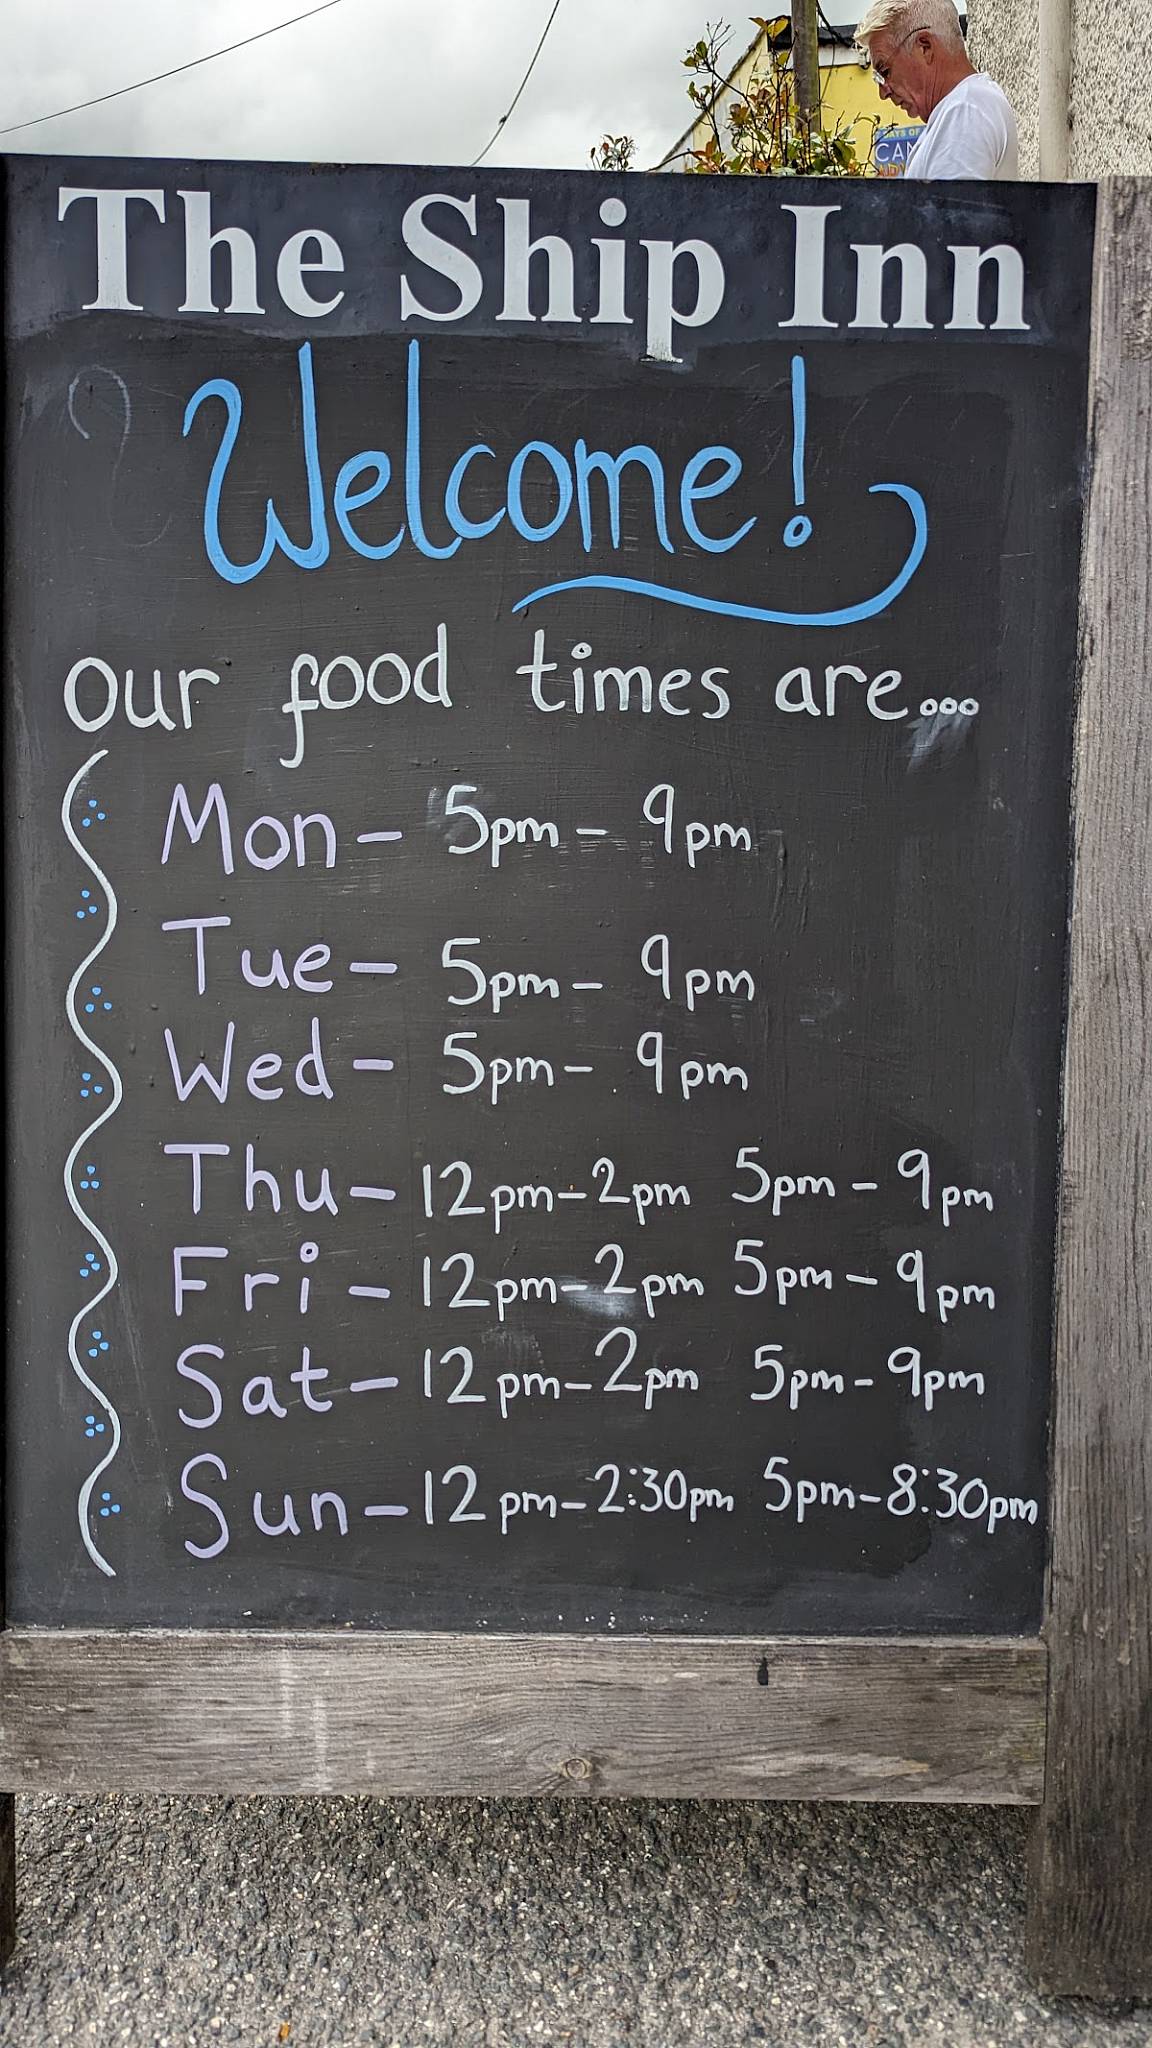 DAYS OF
CAN
The Ship Inn
Welcome!
Our food times are...
Mon - 5pm - 9pm
Tue - 5pm - 9pm
Wed - 5pm - 9pm
Thu - 12pm - 2pm 5pm - 9pm
Fri - 12pm - 2pm 5pm - 9pm
Sat - 12pm - 2pm 5pm - 9pm
Sun - 12pm - 2:30pm 5pm - 8:30pm